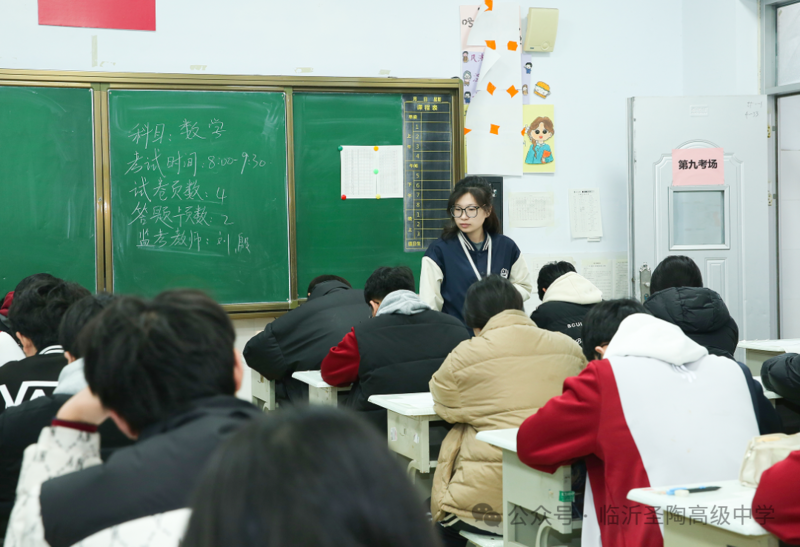 科目: 数学
考试时间: 8:00-9:30
试卷页数: 4
答题卡页数: 2
监考教师: 刘
课程表
第九考场
公众号 · 临沂圣陶高级中学